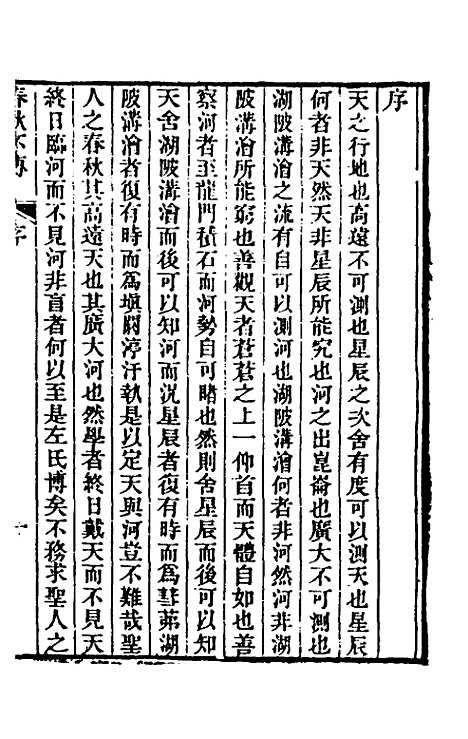 序
天之行地也高遠不可測也星辰之次舍有度可以測天也星辰
何者非天然天非星辰所能究也河之出崑崙也廣大不可測也
湖陂溝澮之流有自可以測河也湖陂溝澮何者非河然河非湖
陂溝澮所能窮也善觀天者蒼蒼之上一仰首而天體自如也善
察河者至龍門積石而河勢自可睹也然則舍星辰而後可以知
天舍湖陂溝澮而後可以知河而況星辰者復有時而為彗茀湖
陂溝澮者復有時而為填閼渟汙執是以定天與河豈不難哉聖
人之春秋其高遠天也其廣大河也然學者終日戴天而不見天
終日臨河而不見河非盲者何以至是左氏博矣不務求聖人之
春秋本傳
序
一